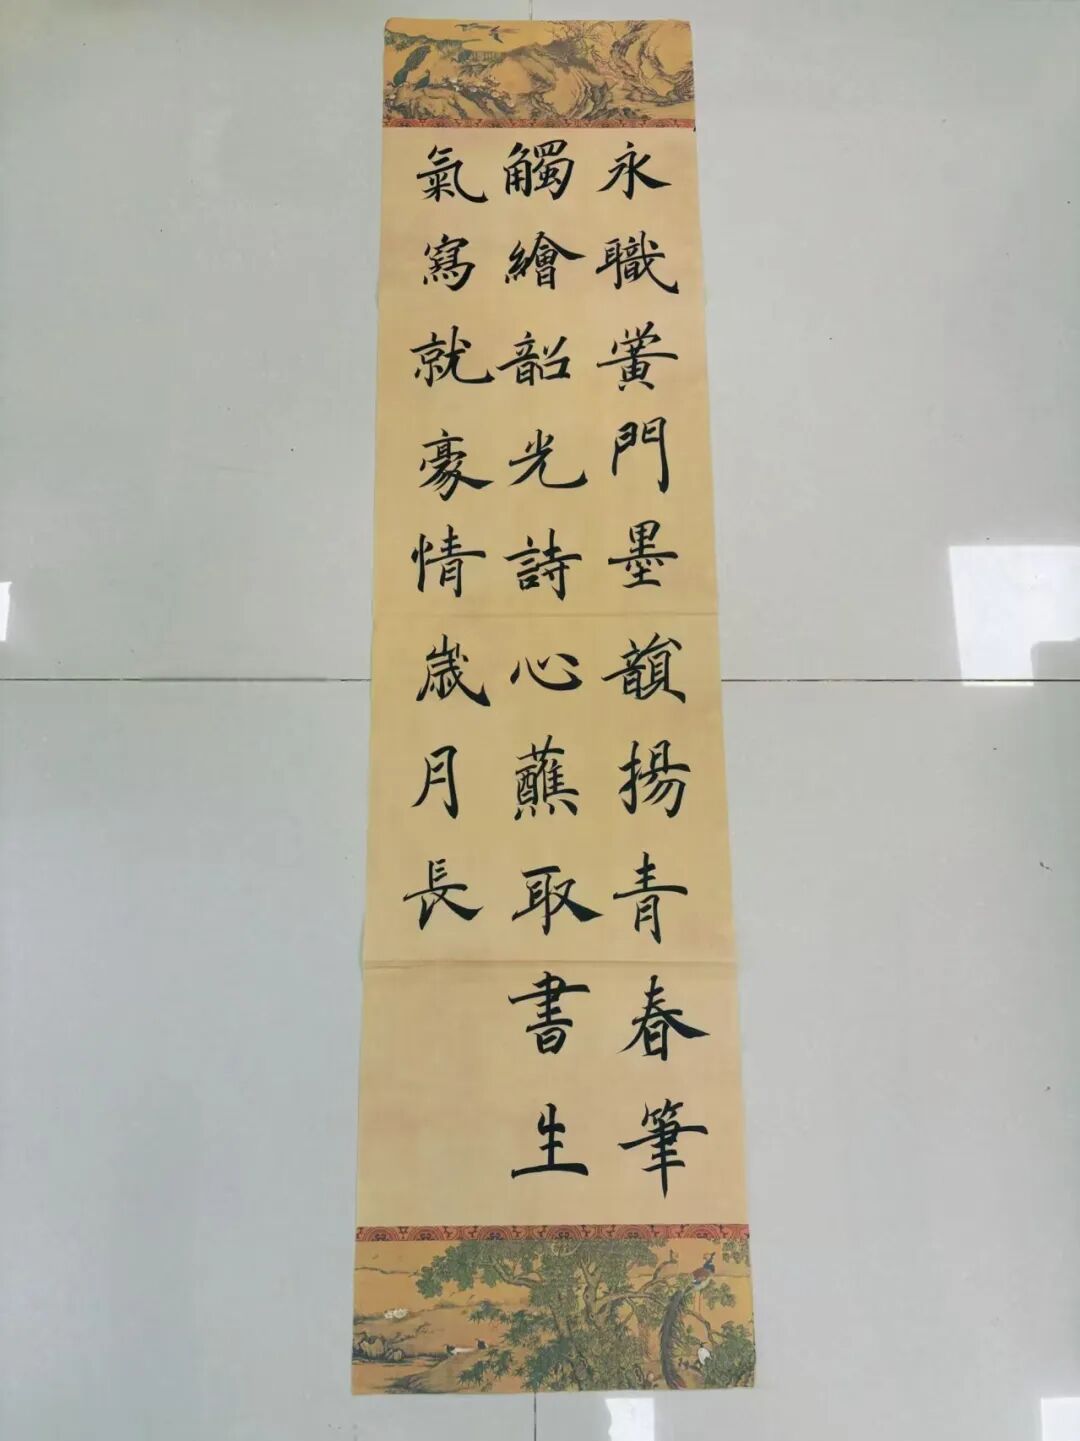 永職黌門墨韻揚青春筆
觸繪韶光詩心蘸取書生
氣寫就豪情歲月長